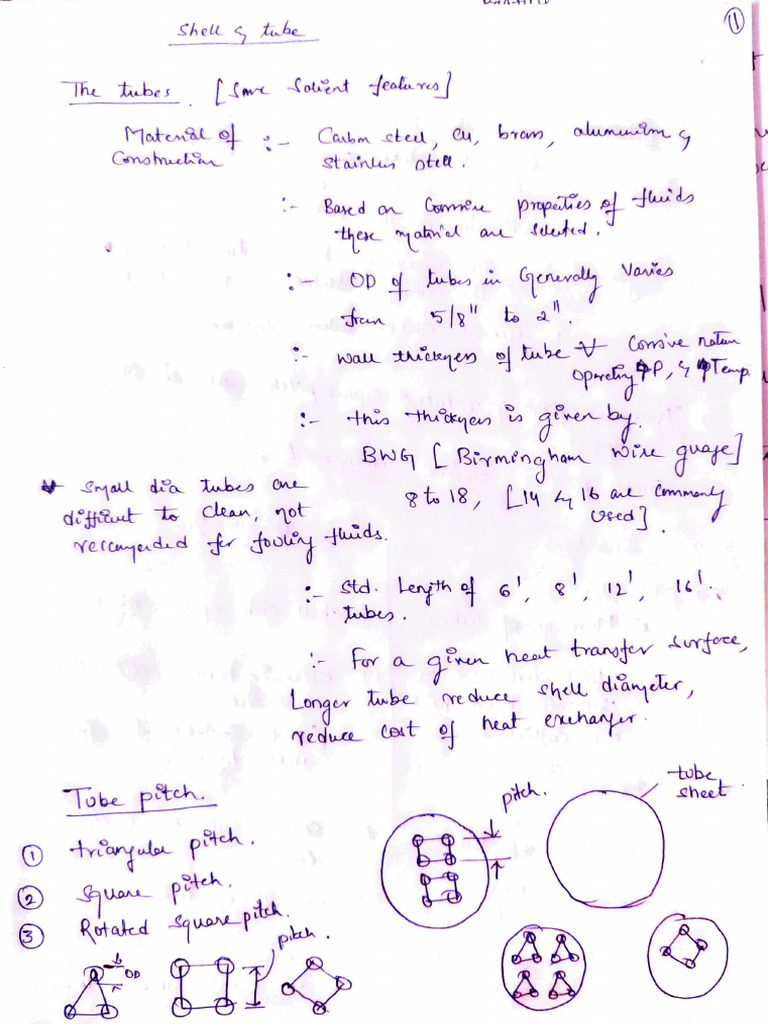 11
Shell & tube
The tubes. [Some Salient features]
Material of Construction :- Carbon steel, Cu, brass, aluminium &
stainless steel.
:- Based on Corrosive properties of fluids
these material are selected.
:- OD of tubes in Generally Varies
from 5/8" to 2".
:- Wall thickness of tube Corrosive nature
Operating P, & Temp.
:- this thickness is given by.
BWG [Birmingham Wire guage]
8 to 18, [14 & 16 are Commonly
Used].
Small dia tubes are
difficult to clean, not
recommended for fouling fluids.
:- Std. Length of 6', 8', 12', 16'.
tubes.
:- For a given heat transfer surface,
Longer tube reduce shell diameter,
reduce cost of heat exchanger.
Tube pitch.
① triangular pitch.
② square pitch.
③ Rotated square pitch.
pitch.
tube
sheet
pitch.
OD